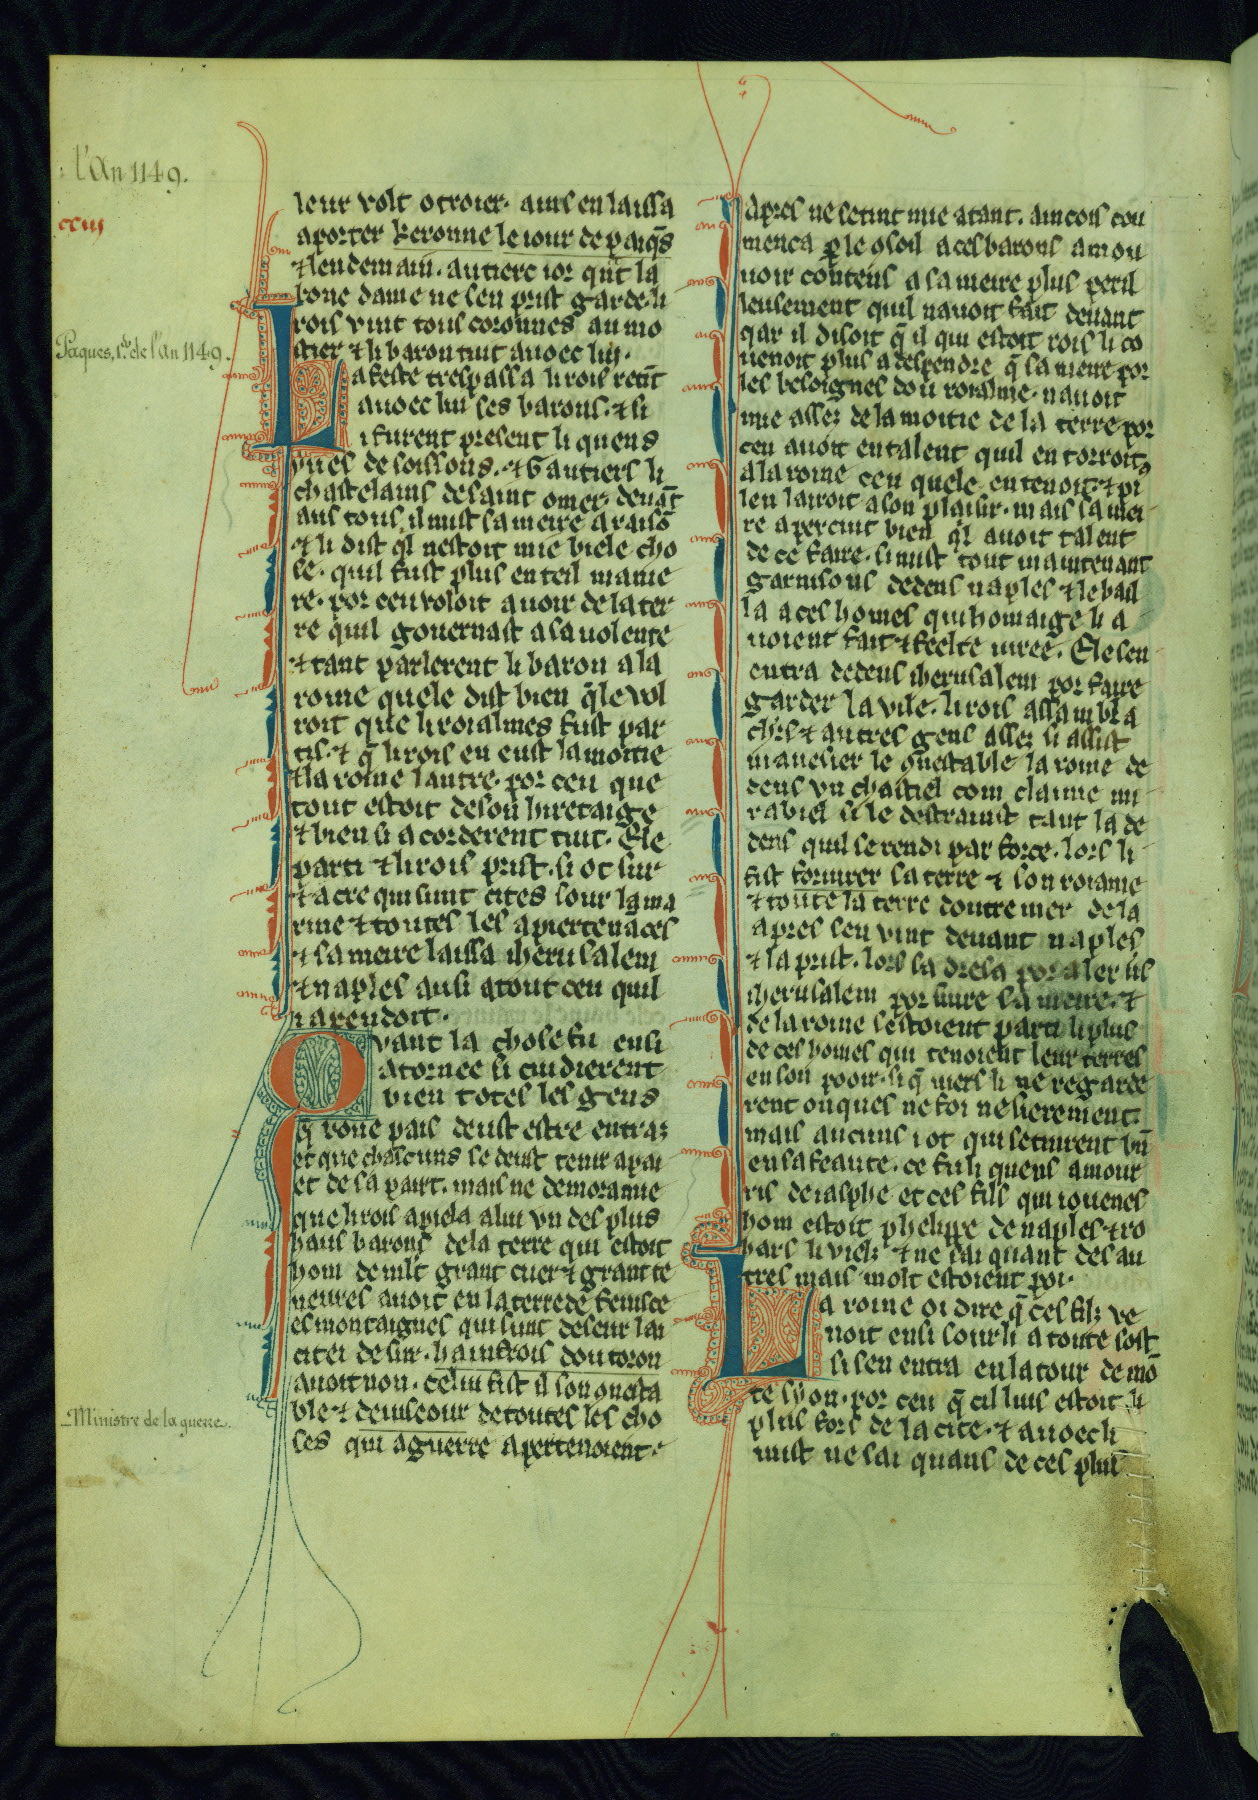 l'An 1149.
ccııȷ
leur volt otroier. ains en laissa
a porter keronne le iour de paiq̄s
⁊ lendemain. au tierc ior q̄nt la
bone dame ne sen prist garde. li
rois vint tous coronnes au mo
stier ⁊ li baron tuit auoec lui.
Paques, 1.er de l'an 1149.
La feste trespassa li rois retīt
auoec lui ses barons. ⁊ si
i furent present li quens
yues de soissons. ⁊ Gautiers li
chastelains de saint omer. deuāt
aus tous il mist sa meire a raisō
⁊ li dist q̄l nestoit mie biele cho
se. quil fust plus en teil manie
re. por ceu voloit auoir de la ter
re quil gouernast a sa uolente
⁊ tant parlerent li baron a la
roine quele dist bien q̄ le vol
roit que li roialmes fust par
tis. ⁊ q̄ li rois en eust la moitie
⁊ la roine lautre. por ceu que
tout estoit de son hiretaige
⁊ bien si acorderent tuit. Ele
parti ⁊ li rois prist. si ot sur
⁊ acre qui sunt cites sour la ma
rine ⁊ toutes les apiertenāces
⁊ sa meire laissa iherusalem
⁊ naples ausi atout ceu quil
i apendoit.
Quant la chose fu ensi
atornee si cuidierent
bien totes les gens
q̄ bone pais deust estre entraz
et que chascuns se deust tenir a pai
et de sa pairt. mais ne demora mie
que li rois apiela a lui vn des plus
haus barons de la terre qui estoit
hom de mlt grant cuer ⁊ grant te
neures auoit en la terre de fenisce
es montaignes qui sunt deseur lai
citei de sur. hainfrois dou toron
auoit non. celui fist il son ɔnesta
ble ⁊ deuiseour de toutes les cho
ses qui a guerre apertenoient.
Ministre de la guerre.
apres ne se tint mie atant. aincois cou
menca p̱ le ɔsoil a ces barons a mou
uoir contens a sa meire plus peril
leusement quil nauoit fait deuant
qar il disoit q̄ il qui estoit rois li co
uenoit plus a despendre q̄ sa meire por
les besoignes dou roialme. nauoit
mie assez de la moitie de la terre por
ceu auoit en talent quil en torroit
a la roine ceu quele en tenoit. ⁊ pi
len lairoit a son plaisir. mais sa mei
re apercuit bien q̄l auoit talent
de ce faire. si mist tout maintenant
garnisons dedens naples ⁊ le bail
la a ces homes qui homaige li a
uoient fait ⁊ feelte iuree. Ele sen
entra dedens iherusalem por faire
garder la vile. li rois assambla
chr̄s ⁊ autres gens assez si assist
manesier le ɔnestable la roine de
dens vn chastiel com claime mi
rabiel si le destrainst tant la de
dens quil se rendi par force. lors li
fist foriurer sa terre ⁊ son roiame
⁊ toute la terre doutremer de la
apres sen vint deuant naples
⁊ la prist. lors sa dresa por aler us
iherusalem por siure sa meire. ⁊
de la roine sestoient parti li plus
de ces homes qui tenoient leur terres
en son pooir. si q̄ uiers li ne regarde
rent onques ne foi ne sierement.
mais aucuns i ot qui se tinrent bn̄
en sa feaute. ce fu li quens amour
ris de iasphe et ces fils qui iouenes
hom estoit phelippe de naples ⁊ ro
bars li vielz ⁊ ne sai quant des au
tres mais molt estoient poi.
La roine oi dire q̄ ces filz ve
noit ensi sour li a toute sost
si sen entra en la tour de mō
te syon. por ceu q̄ cil luis estoit li
plus fors de la cite. ⁊ auoec li
mist ne sai quans de ces plus